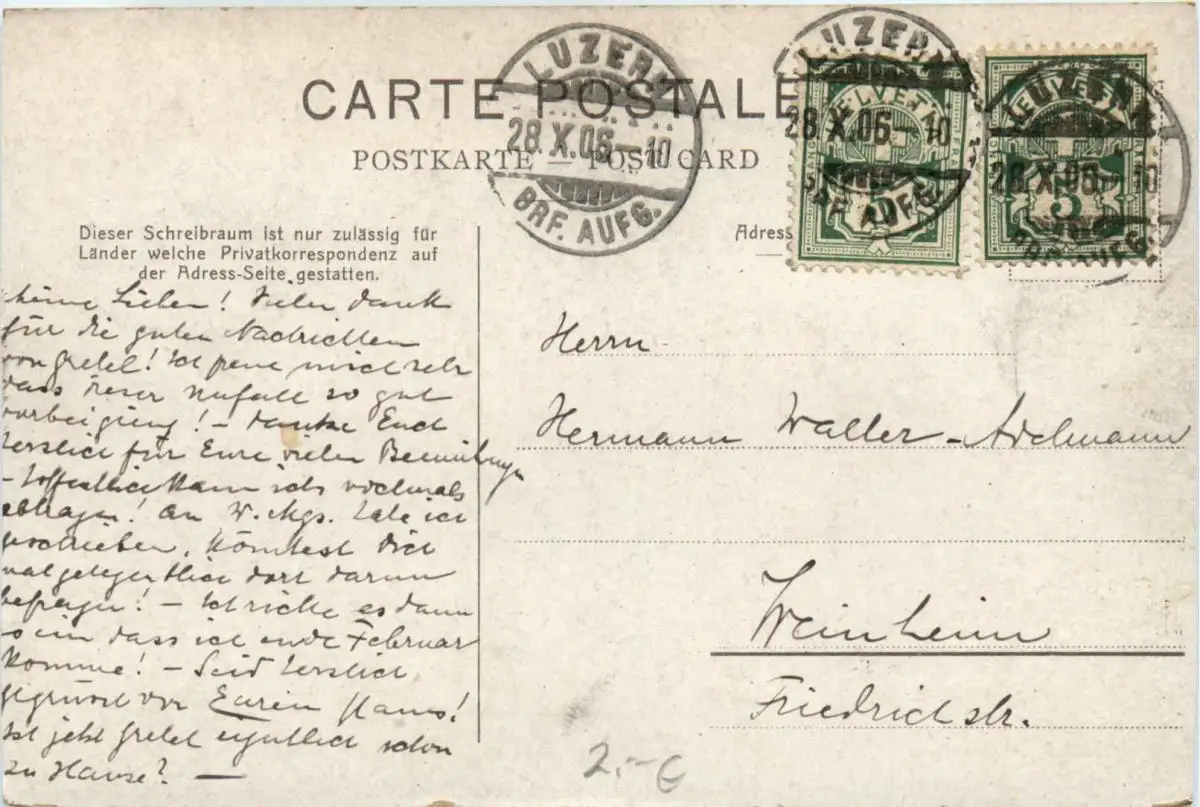 CARTE POSTALE
POSTKARTE — POST CARD
LUZERN
28.X.06.–10
BRF. AUFG.
LUZERN
28.X.06–10
BRF. AUFG.
HELVETIA
5
LUZERN
28.X.06–10
BRF. AUFG.
HELVETIA
5
Dieser Schreibraum ist nur zulässig für
Länder welche Privatkorrespondenz auf
der Adress-Seite gestatten.
Adress
Meine Lieben! Vielen Dank
für die guten Nachrichten
von Gretel! Ich freue mich sehr
dass dieser Unfall so gut
vorbeiging! – Danke Euch
herzlich für Eure vielen Bemühungen
– Hoffentlich kann ichs nochmals
abtragen! An W. habe ich
geschrieben. Könntest Dich
mal gelegentlich dort darum
befragen! – Ich richte es dann
so ein dass ich ende Februar
komme! – Seid herzlich
gegrüsst von Eurem Hans!
Ist jetzt Gretel eigentlich schon
zu Hause? —
Herrn
Hermann Waller-
Weinheim
Friedrichstr.
2.-€